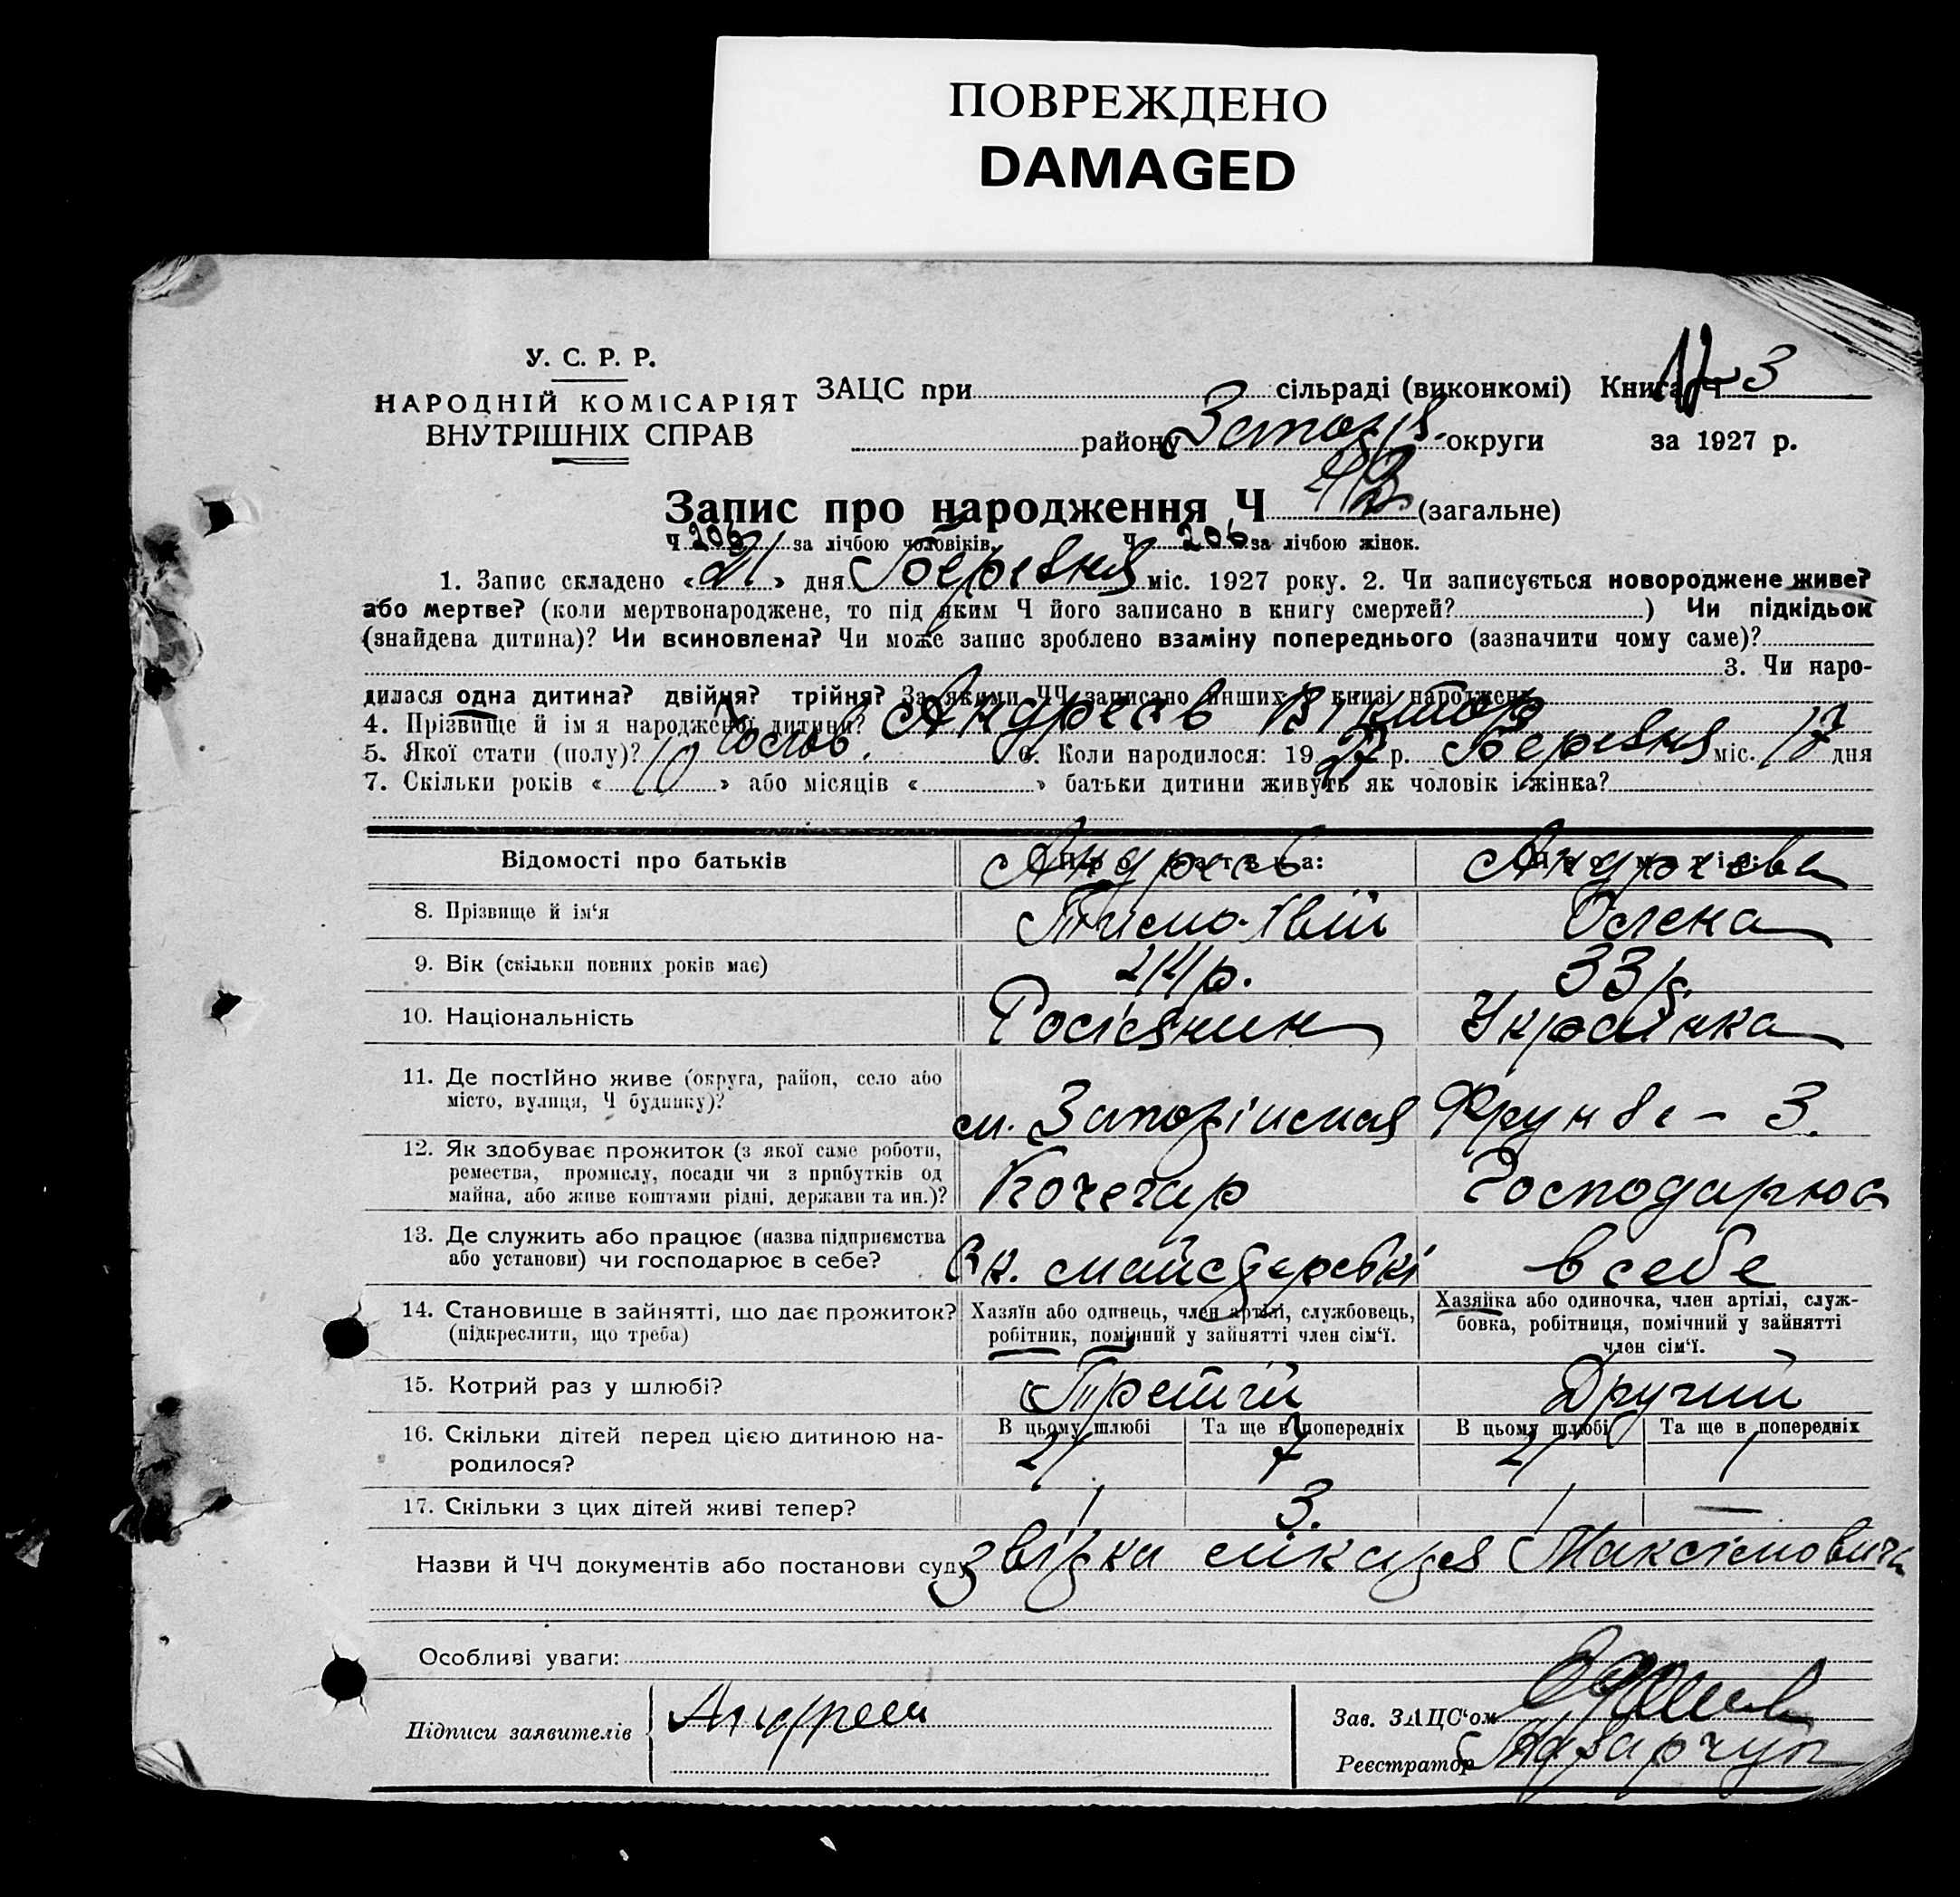 ПОВРЕЖДЕНО
DAMAGED
У. С. Р. Р.
НАРОДНІЙ КОМІСАРІЯТ
ВНУТРІШНІХ СПРАВ
ЗАЦС при сільраді (виконкомі) Книга Ч 3
району округи за 1927 р.
Запис про народження Ч (загальне)
Ч 206 за лічбою чоловіків. Ч 206 за лічбою жінок.
1. Запис складено « 21 » дня Березня міс. 1927 року. 2. Чи записується новороджене живе?
або мертве? (коли мертвонароджене, то під яким Ч його записано в книгу смертей? ) Чи підкідьок
(знайдена дитина)? Чи всиновлена? Чи може запис зроблено взаміну попереднього (зазначити чому саме)?
3. Чи наро-
дилася одна дитина? двійня? трійня? За якими ЧЧ записано инших у книзі народжень
4. Прізвище й ім я народженої дитини? Андреєв Віктор
5. Якої стати (полу)? 6. Коли народилося: 1927 р. Березня міс. 17 дня
7. Скільки років « 10 » або місяців « » батьки дитини живуть як чоловік і жінка?
Відомості про батьків Про батька: Про матір:
Андреєв Андреєва
8. Прізвище й ім‘я Тимофій Олена
9. Вік (скільки повних років має) 33 р.
10. Національність Росіянин Українка
11. Де постійно живе (округа, район, село або
місто, вулиця, Ч будинку)?
м. Фрунзе - 3.
12. Як здобуває прожиток (з якої саме роботи,
ремества, промислу, посади чи з прибутків од
майна, або живе коштами рідні, держави та ин.)?
Кочегар Господарює
13. Де служить або працює (назва підприємства
або установи) чи господарює в себе?
майстерські в себе
14. Становище в зайнятті, що дає прожиток?
(підкреслити, що треба)
Хазяїн або одинець, член артілі, службовець,
робітник, помічний у зайнятті член сім‘ї.
Хазяйка або одиночка, член артілі, служ-
бовка, робітниця, помічний у зайнятті
член сім‘ї.
15. Котрий раз у шлюбі? Третій Другий
В цьому шлюбі Та ще в попередніх В цьому шлюбі Та ще в попередніх
16. Скільки дітей перед цією дитиною на-
родилося?
2 7 2 1
17. Скільки з цих дітей живі тепер? 1 3. 1 —
Назви й ЧЧ документів або постанови суду звізка лікаря Максімовича
Особливі уваги:
Підписи заявителів Андреєв
Зав. ЗАЦС‘ом
Реєстратор